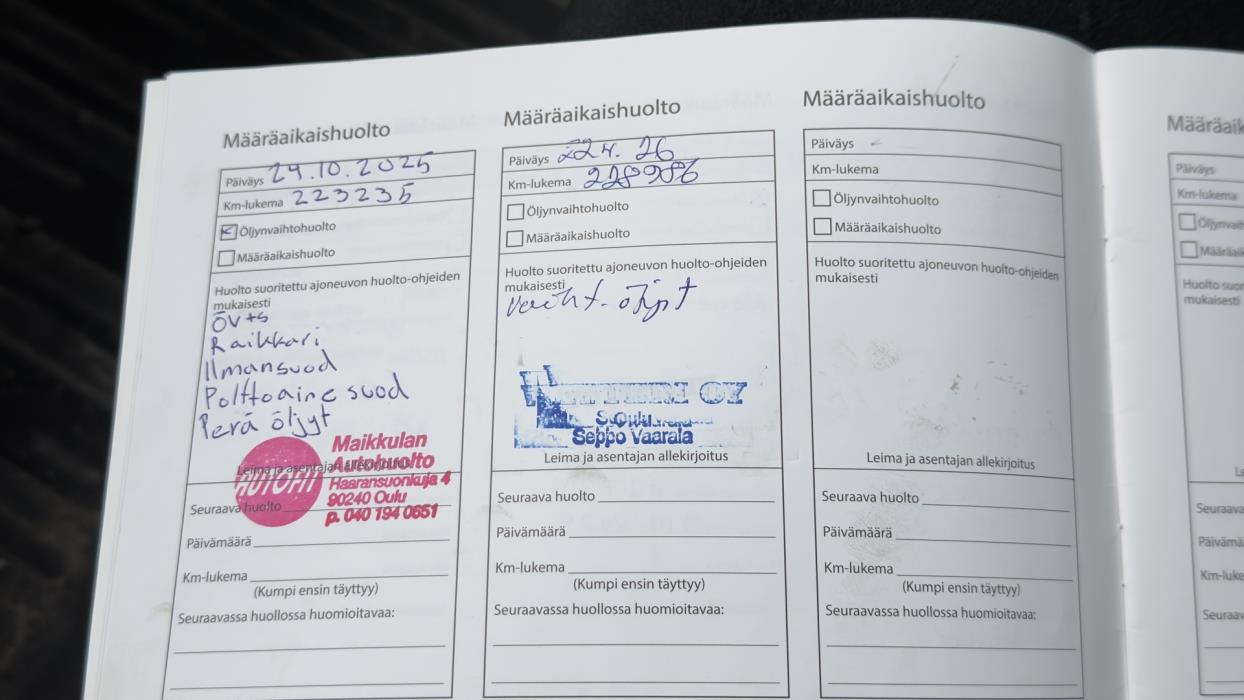 Määräaikaishuolto
Päiväys 24.10.2025
Km-lukema 223235
Öljynvaihtohuolto
Määräaikaishuolto
Huolto suoritettu ajoneuvon huolto-ohjeiden
mukaisesti
ÖV+S
Raikkari
Ilmansuod
Polttoaine suod
Perä öljyt
Maikkulan
Autohuolto
Haaransuonkuja 4
90240 Oulu
p. 040 194 0651
AUTOFIT
Leima ja asentajan allekirjoitus
Seuraava huolto
Päivämäärä
Km-lukema
(Kumpi ensin täyttyy)
Seuraavassa huollossa huomioitavaa:
Määräaikaishuolto
Päiväys 26
Km-lukema 228986
Öljynvaihtohuolto
Määräaikaishuolto
Huolto suoritettu ajoneuvon huolto-ohjeiden
mukaisesti
öljyt
OY
Seppo Vaarala
Leima ja asentajan allekirjoitus
Seuraava huolto
Päivämäärä
Km-lukema
(Kumpi ensin täyttyy)
Seuraavassa huollossa huomioitavaa:
Määräaikaishuolto
Päiväys
Km-lukema
Öljynvaihtohuolto
Määräaikaishuolto
Huolto suoritettu ajoneuvon huolto-ohjeiden
mukaisesti
Leima ja asentajan allekirjoitus
Seuraava huolto
Päivämäärä
Km-lukema
(Kumpi ensin täyttyy)
Seuraavassa huollossa huomioitavaa:
Päiväys
Km-lukema
mukaisesti